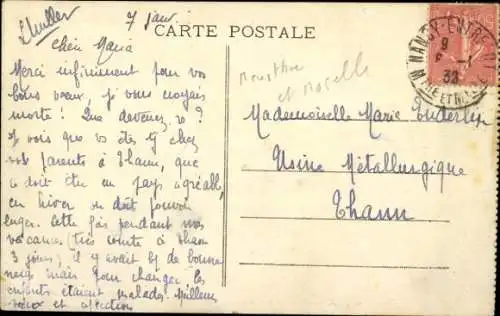 Lhuller
7 janv.
CARTE POSTALE
Chère Maria
Merci infiniment pour vos
bons voeux, je vous croyais
morte ! Que devenez-v. ?
Je vois que vs êtes chez
vos parents à Thann, que
ce doit être un pays agréable
en hiver on doit pouvoir
luger. Cette fois pendant nos
vacances (très courte à Thann
3 jours), il y avait de bonne
neige mais pour changer les
enfants étaient malades. Meilleurs
voeux et affection
Meurthe
et Moselle
Mademoiselle Marie
Usine Métallurgique
Thann
NANCY-ENTREPOT
9
-1
33
MEURTHE ET MOSELLE